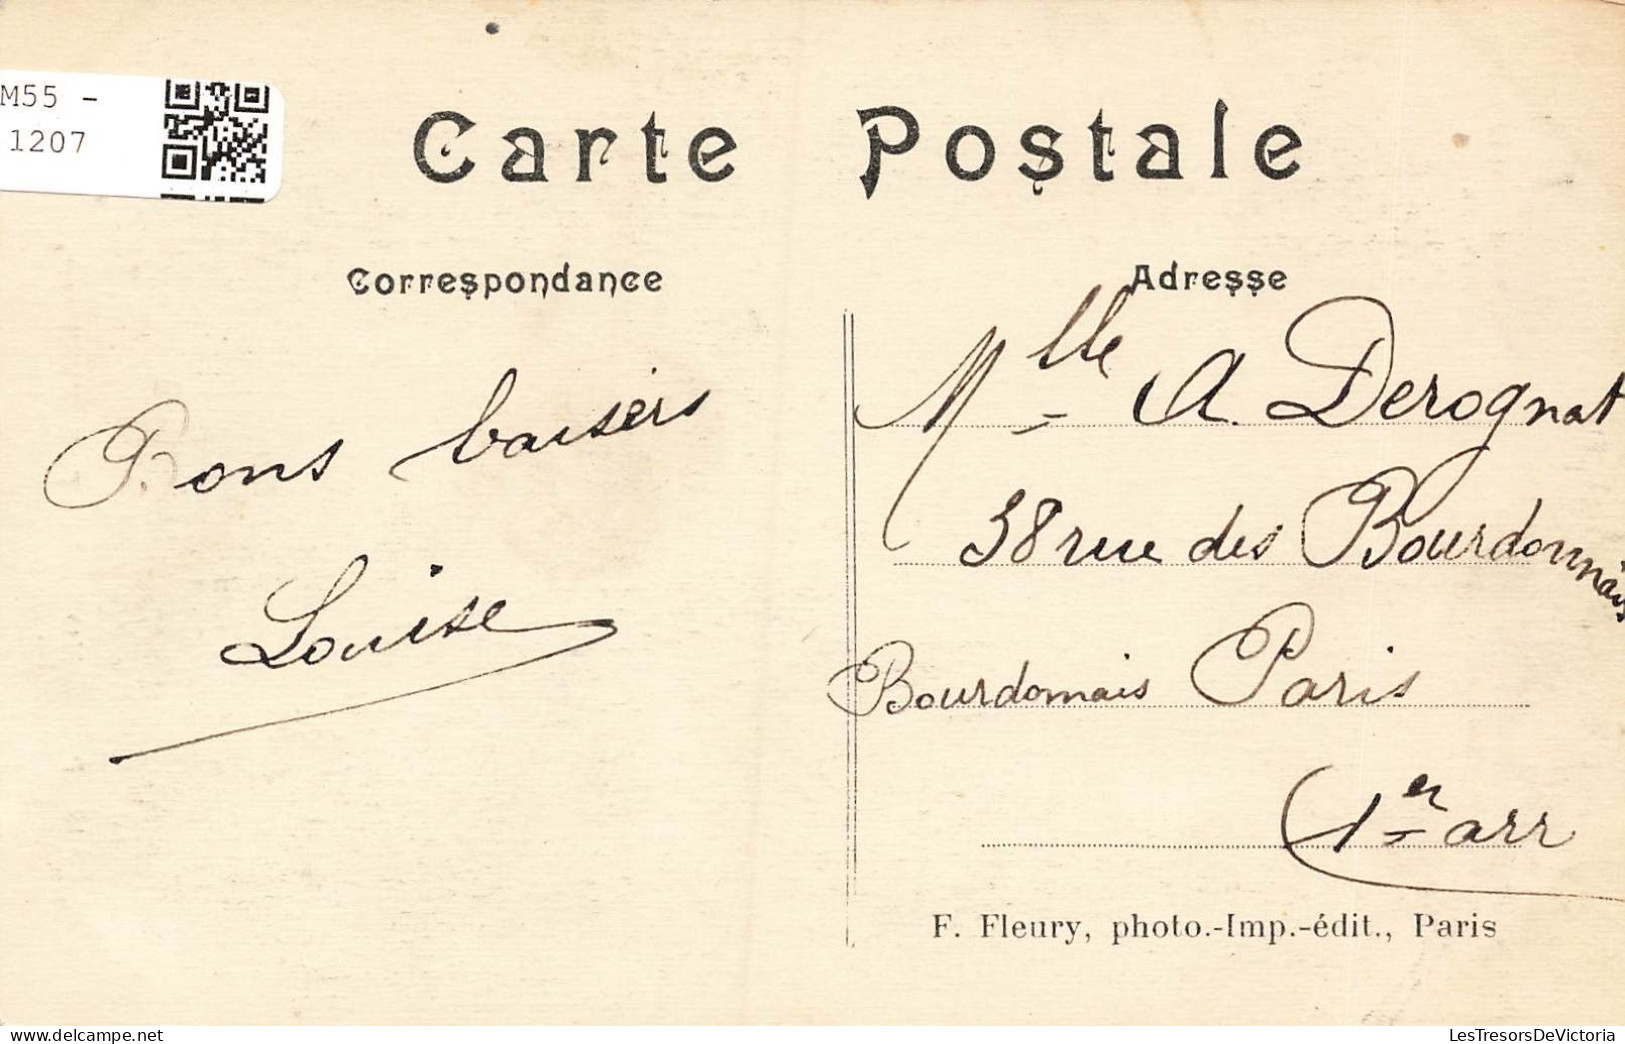 M55 -
1207
Carte Postale
Correspondance
Adresse
Bons baisers
Louise
Mlle A. Derognat
38 rue des Bourdonnais
Bourdonnais Paris
1er arr
F. Fleury, photo.-Imp.-édit., Paris
delcampe.net
LesTresorsDeVictoria